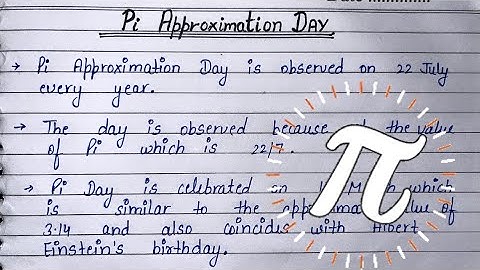 Date
Pi Approximation DAY
→ Pi Approximation Day is observed on 22 July
every year.
→ The day is observed because the value
of Pi which is 22/7.
→ Pi Day is celebrated on which
is similar to the value of
3.14 and also coincides with Albert
Einstein's birthday.
π